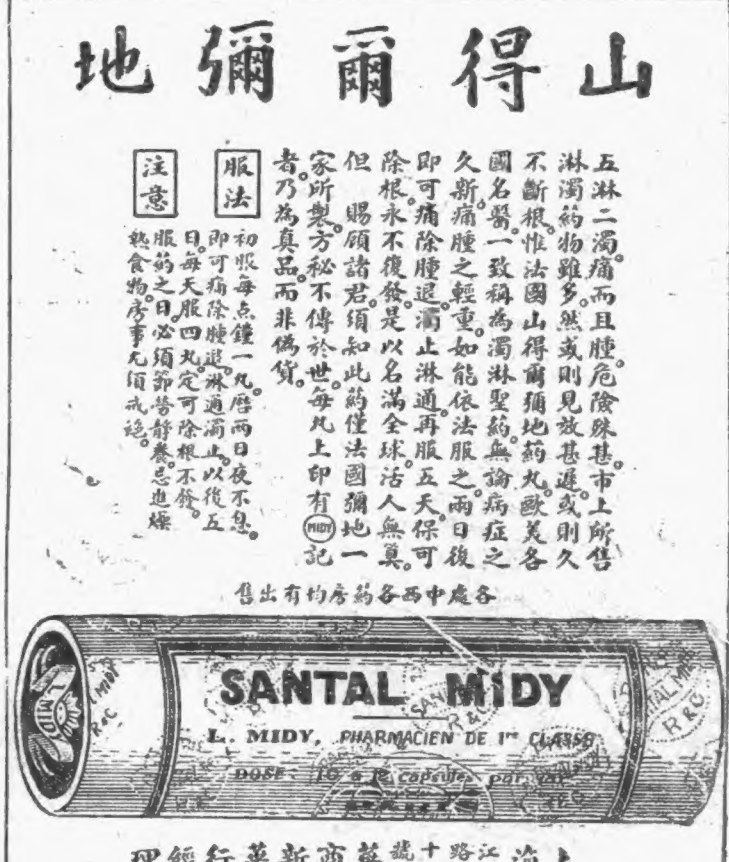 山得爾彌地
五淋二濁。痛而且腫。危險殊甚。市上所售
淋濁葯物雖多。然或則見效甚遲。或則久
不斷根。惟法國山得爾彌地葯丸。歐美各
國名醫。一致稱為濁淋聖葯。無論病症之
久新。痛腫之輕重。如能依法服之。兩日後
即可痛除腫退。濁止淋通。再服五天。保可
除根。永不復發。是以名滿全球。活人無算。
但 賜顧諸君。須知此葯僅法國彌地一
家所製。方秘不傳於世。每丸上印有MIDY記
者。乃為真品。而非偽貨。
服法
初服每点鐘一丸。歷兩日夜不息。
即可痛除腫退。淋通濁止。以後五
日。每天服四丸。定可除根不發。
注意
服葯之日。必須節勞靜養。忌進燥
熱食物。房事尤須戒絕。
各處中西各葯房均有出售
MIDY
SANTAL MIDY
L. MIDY, PHARMACIEN DE 1re CLASSE
DOSE: 10 à 12 capsules par jour
SANTAL MIDY
R & C
上海江路十號 商新華行經理